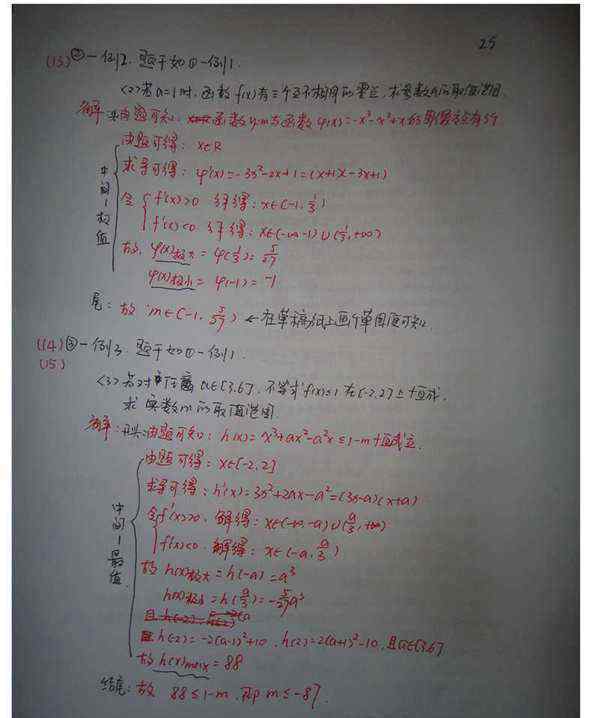 25
(13) ②一例2. 题干如①一例1.
<2>若a=1时,函数f(x)有三个互不相同的零点,求实数m的取值范围.
解:头:由题可知:函数y=m与函数φ(x)=-x³-x²+x的图像交点有3个
由题可得: x∈R
求导可得: φ'(x)=-3x²-2x+1=(x+1)(-3x+1)
中间—极值
令 { f'(x)>0 解得: x∈(-1, 1/3)
f'(x)<0 解得: x∈(-∞,-1)∪(1/3,+∞)
故, φ(x)极大= φ(1/3)= 5/27
φ(x)极小= φ(-1)= -1
尾: 故 m∈(-1, 5/27) ←在草稿纸上画个草图便可知.
(14) ③一例3. 题干如①一例1.
(15)
<3>若对任意 a∈[3,6], 不等式f(x)≤1 在[-2,2]上恒成.
求实数m的取值范围
解: 头:由题可知: h(x)= x³+ax²-a²x≤1-m 恒成立.
由题可得: x∈[-2,2]
求导可得: h'(x)=3x²+2ax-a²=(3x-a)(x+a)
中间—最值
令 { f'(x)>0, 解得: x∈(-∞,-a)∪(a/3,+∞)
f'(x)<0, 解得: x∈(-a, a/3)
故 h(x)极大=h(-a)=a³
h(x)极小=h(a/3)=-5/27a³
且h(-2)= -2(a-1)²+10, h(2)=2(a+1)²-10, 且a∈[3,6]
故 h(x)max = 88
结尾: 故 88≤1-m, 即 m≤-87.